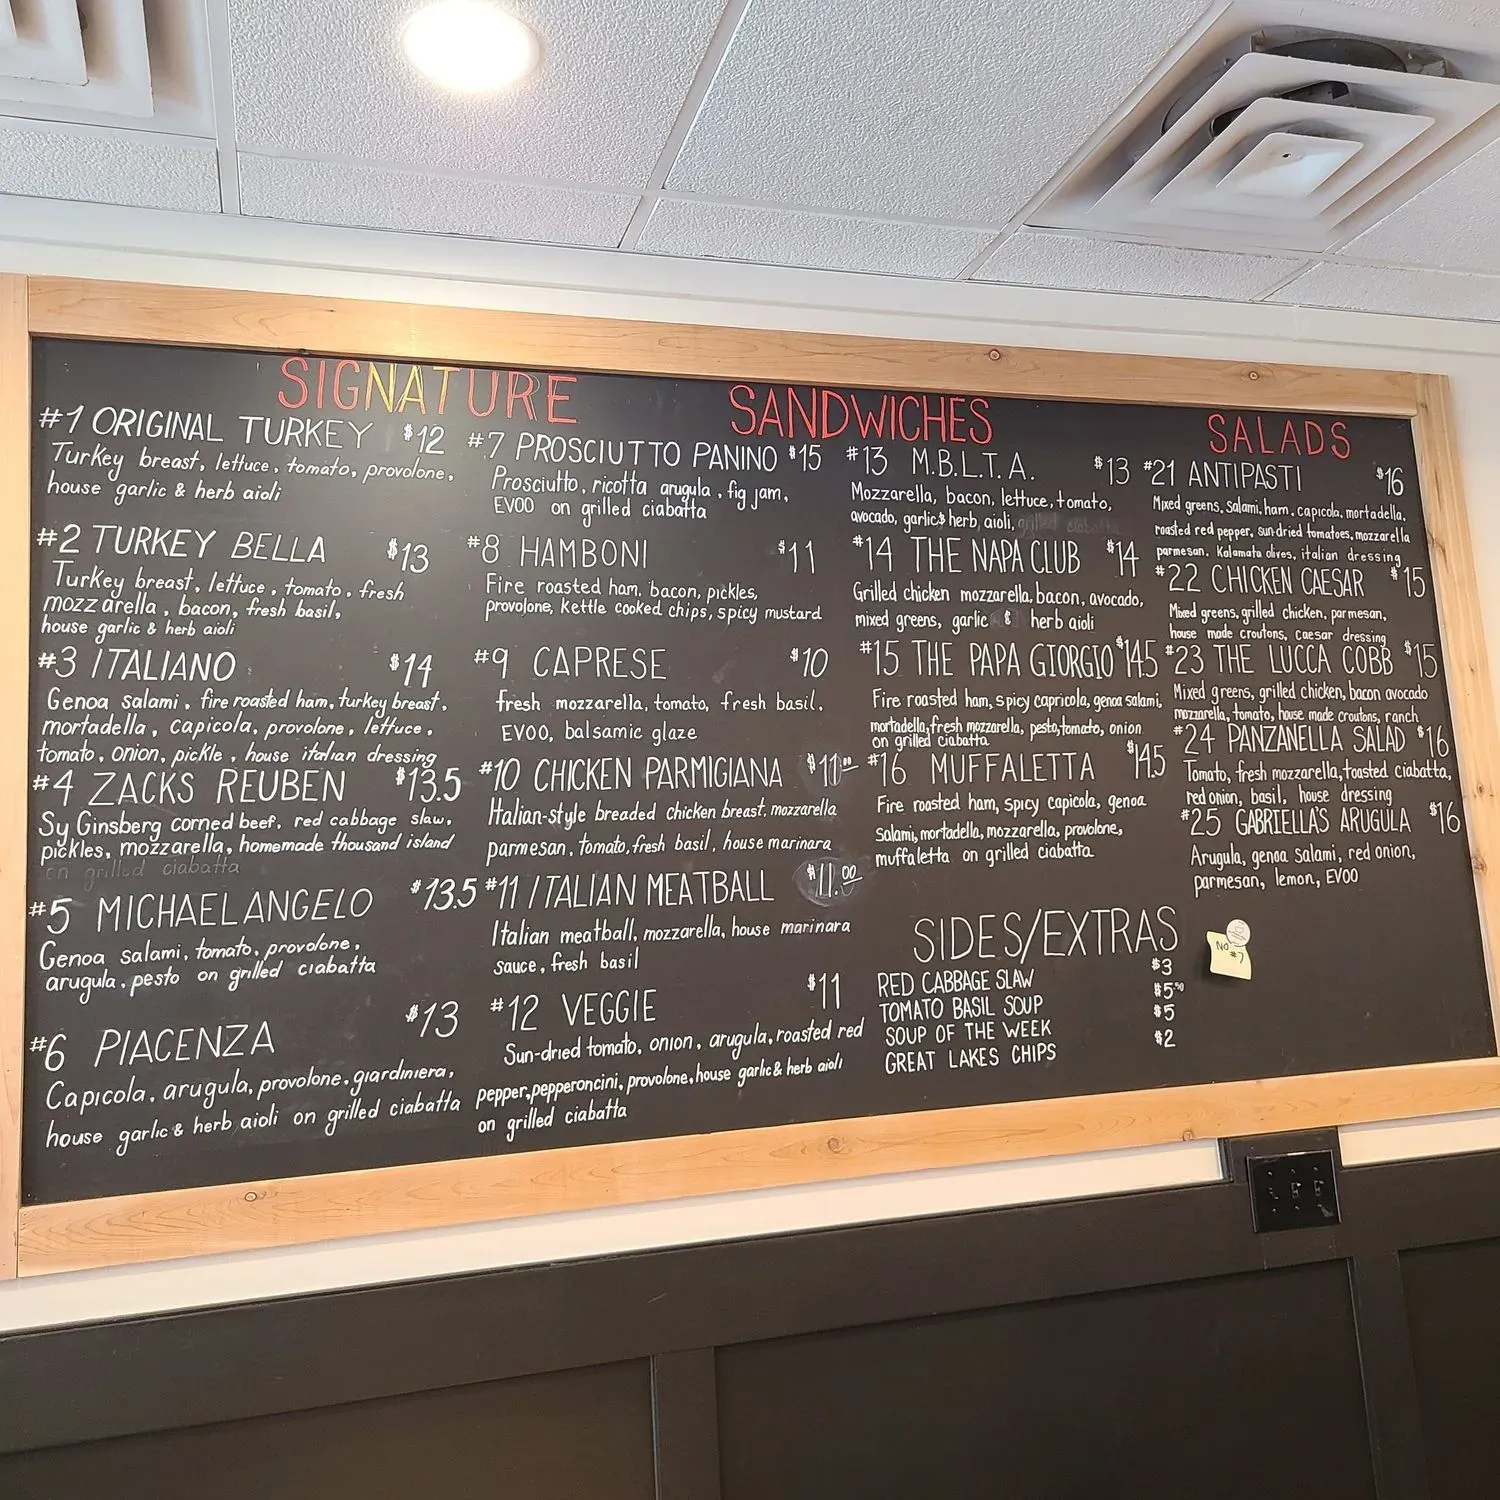 SIGNATURE SANDWICHES
#1 ORIGINAL TURKEY $12
Turkey breast, lettuce, tomato, provolone,
house garlic & herb aioli
#2 TURKEY BELLA $13
Turkey breast, lettuce, tomato, fresh
mozzarella, bacon, fresh basil,
house garlic & herb aioli
#3 ITALIANO $14
Genoa salami, fire roasted ham, turkey breast,
mortadella, capicola, provolone, lettuce,
tomato, onion, pickle, house italian dressing
#4 ZACKS REUBEN $13.5
Sy Ginsberg corned beef, red cabbage slaw,
pickles, mozzarella, homemade thousand island
on grilled ciabatta
#5 MICHAELANGELO $13.5
Genoa salami, tomato, provolone,
arugula, pesto on grilled ciabatta
#6 PIACENZA $13
Capicola, arugula, provolone, giardiniera,
house garlic & herb aioli on grilled ciabatta
#7 PROSCIUTTO PANINO $15
Prosciutto, ricotta arugula, fig jam,
EVOO on grilled ciabatta
#8 HAMBONI $11
Fire roasted ham, bacon, pickles,
provolone, kettle cooked chips, spicy mustard
#9 CAPRESE $10
fresh mozzarella, tomato, fresh basil,
EVOO, balsamic glaze
#10 CHICKEN PARMIGIANA $11.00
Italian-style breaded chicken breast, mozzarella
parmesan, tomato, fresh basil, house marinara
#11 ITALIAN MEATBALL $11.00
Italian meatball, mozzarella, house marinara
sauce, fresh basil
#12 VEGGIE $11
Sun-dried tomato, onion, arugula, roasted red
pepper, pepperoncini, provolone, house garlic & herb aioli
on grilled ciabatta
#13 M.B.L.T.A. $13
Mozzarella, bacon, lettuce, tomato,
avocado, garlic & herb, aioli, grilled ciabatta
#14 THE NAPA CLUB $14
Grilled chicken mozzarella, bacon, avocado,
mixed greens, garlic & herb aioli
#15 THE PAPA GIORGIO $14.5
Fire roasted ham, spicy capricola, genoa salami,
mortadella, fresh mozzarella, pesto, tomato, onion
on grilled ciabatta
#16 MUFFALETTA $14.5
Fire roasted ham, spicy capicola, genoa
Salami, mortadella, mozzarella, provolone,
muffaletta on grilled ciabatta
SIDES/EXTRAS
RED CABBAGE SLAW $3
TOMATO BASIL SOUP $5.50
SOUP OF THE WEEK $5
GREAT LAKES CHIPS $2
SALADS
#21 ANTIPASTI $16
Mixed greens, salami, ham, capicola, mortadella,
roasted red pepper, sun-dried tomatoes, mozzarella
parmesan, Kalamata olives, italian dressing
#22 CHICKEN CAESAR $15
Mixed greens, grilled chicken, parmesan,
house made croutons, caesar dressing
#23 THE LUCCA COBB $15
Mixed greens, grilled chicken, bacon avocado
mozzarella, tomato, house made croutons, ranch
#24 PANZANELLA SALAD $16
Tomato, fresh mozzarella, toasted ciabatta,
red onion, basil, house dressing
#25 GABRIELLA'S ARUGULA $16
Arugula, genoa salami, red onion,
parmesan, lemon, EVOO
NO
#7